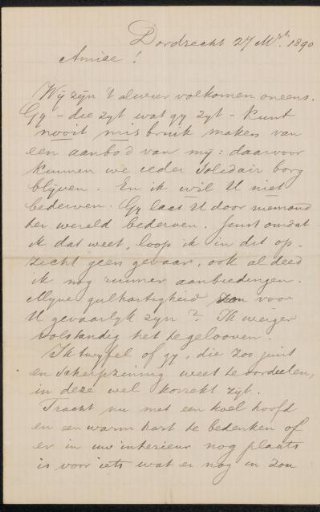 Dordrecht 27 Mrt 1890
Amice!
Wij zijn 't alweer volkomen oneens.
Gy - die zyt wat gy zyt - kunt
nooit misbruik maken van
een aanbod van my: daarvoor
kunnen we ieder solidair borg
blijven. En ik wil U niet
bederven. Gy laat U door niemand
ter wereld bederven. Juist omdat
ik dat weet, loop ik in dit op-
zicht geen gevaar, ook al deed
ik nog ruimer aanbiedingen.
Myne gulhartigheid zou voor
U gevaarlyk zyn? Ik weiger
volstandig het te gelooven.
Ik twyfel of gy, die zoo juist
en scherpzinnig weet te oordeelen,
in deze wel korrekt zyt.
Tracht nu met een koel hoofd
en een warm hart te bedenken of
er in uw interieur nog plaats
is voor iets wat er nog in zou